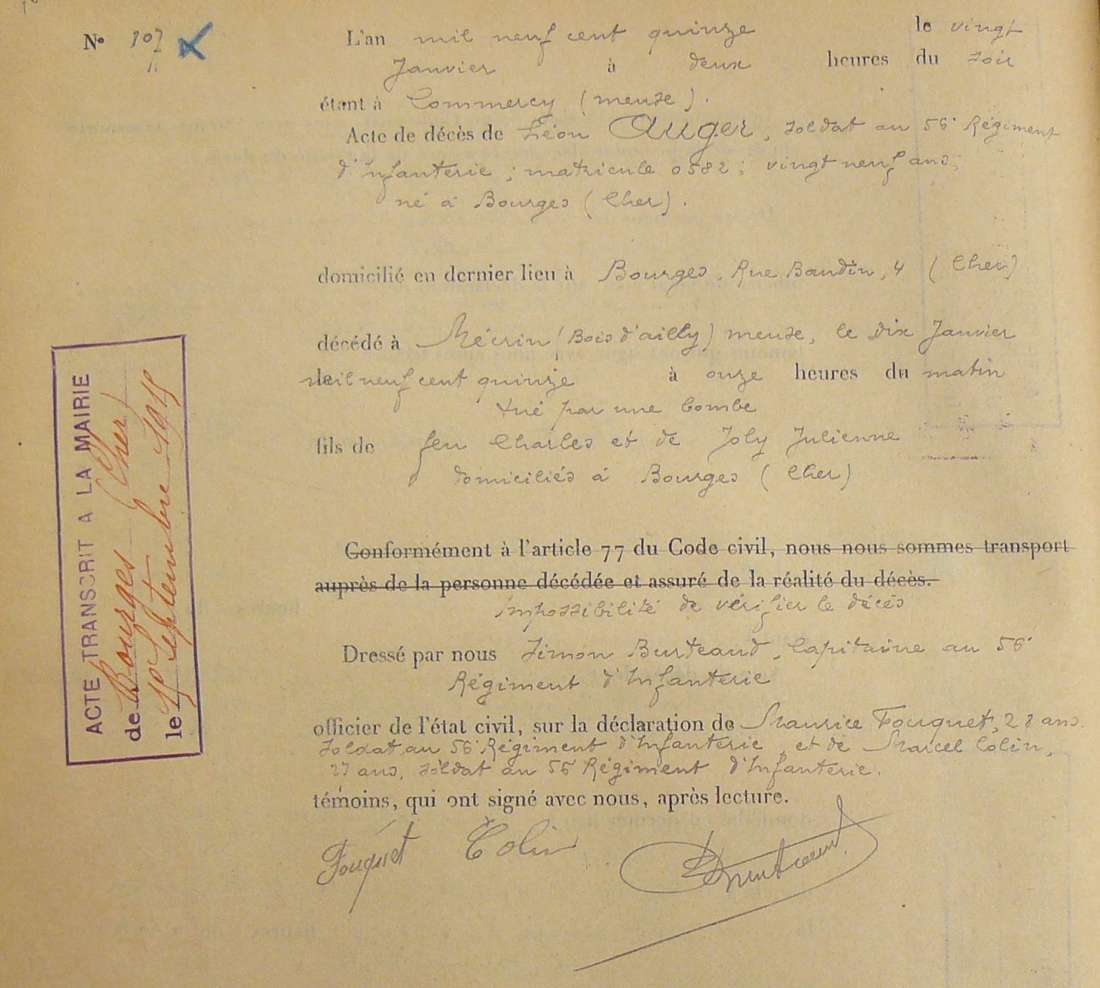 N° 107
L'an mil neuf cent quinze le vingt
Janvier à deux heures du soir
étant à Commercy (meuse).
Acte de décès de Léon Auger, soldat au 56e Régiment
d'Infanterie ; matricule 0582 ; vingt neuf ans,
né à Bourges (Cher).
domicilié en dernier lieu à Bourges, Rue Baudin, 4 (Cher)
décédé à Mécrin (Bois d'ailly) meuse, le dix Janvier
mil neuf cent quinze à onze heures du matin
tué par une bombe
fils de feu Charles et de Joly Julienne
domiciliés à Bourges (Cher)
Conformément à l'article 77 du Code civil, nous nous sommes transport
auprès de la personne décédée et assuré de la réalité du décès.
impossibilité de vérifier le décès
Dressé par nous Simon Burteaud, Capitaine au 56e
Régiment d'Infanterie
officier de l'état civil, sur la déclaration de Maurice Fouquet, 28 ans.
Soldat au 56e Régiment d'Infanterie, et de Marcel Colin,
27 ans, soldat au 56e Régiment d'Infanterie.
témoins, qui ont signé avec nous, après lecture.
Fouquet Colin
ACTE TRANSCRIT A LA MAIRIE
de Bourges (Cher)
le 1er Septembre 1915